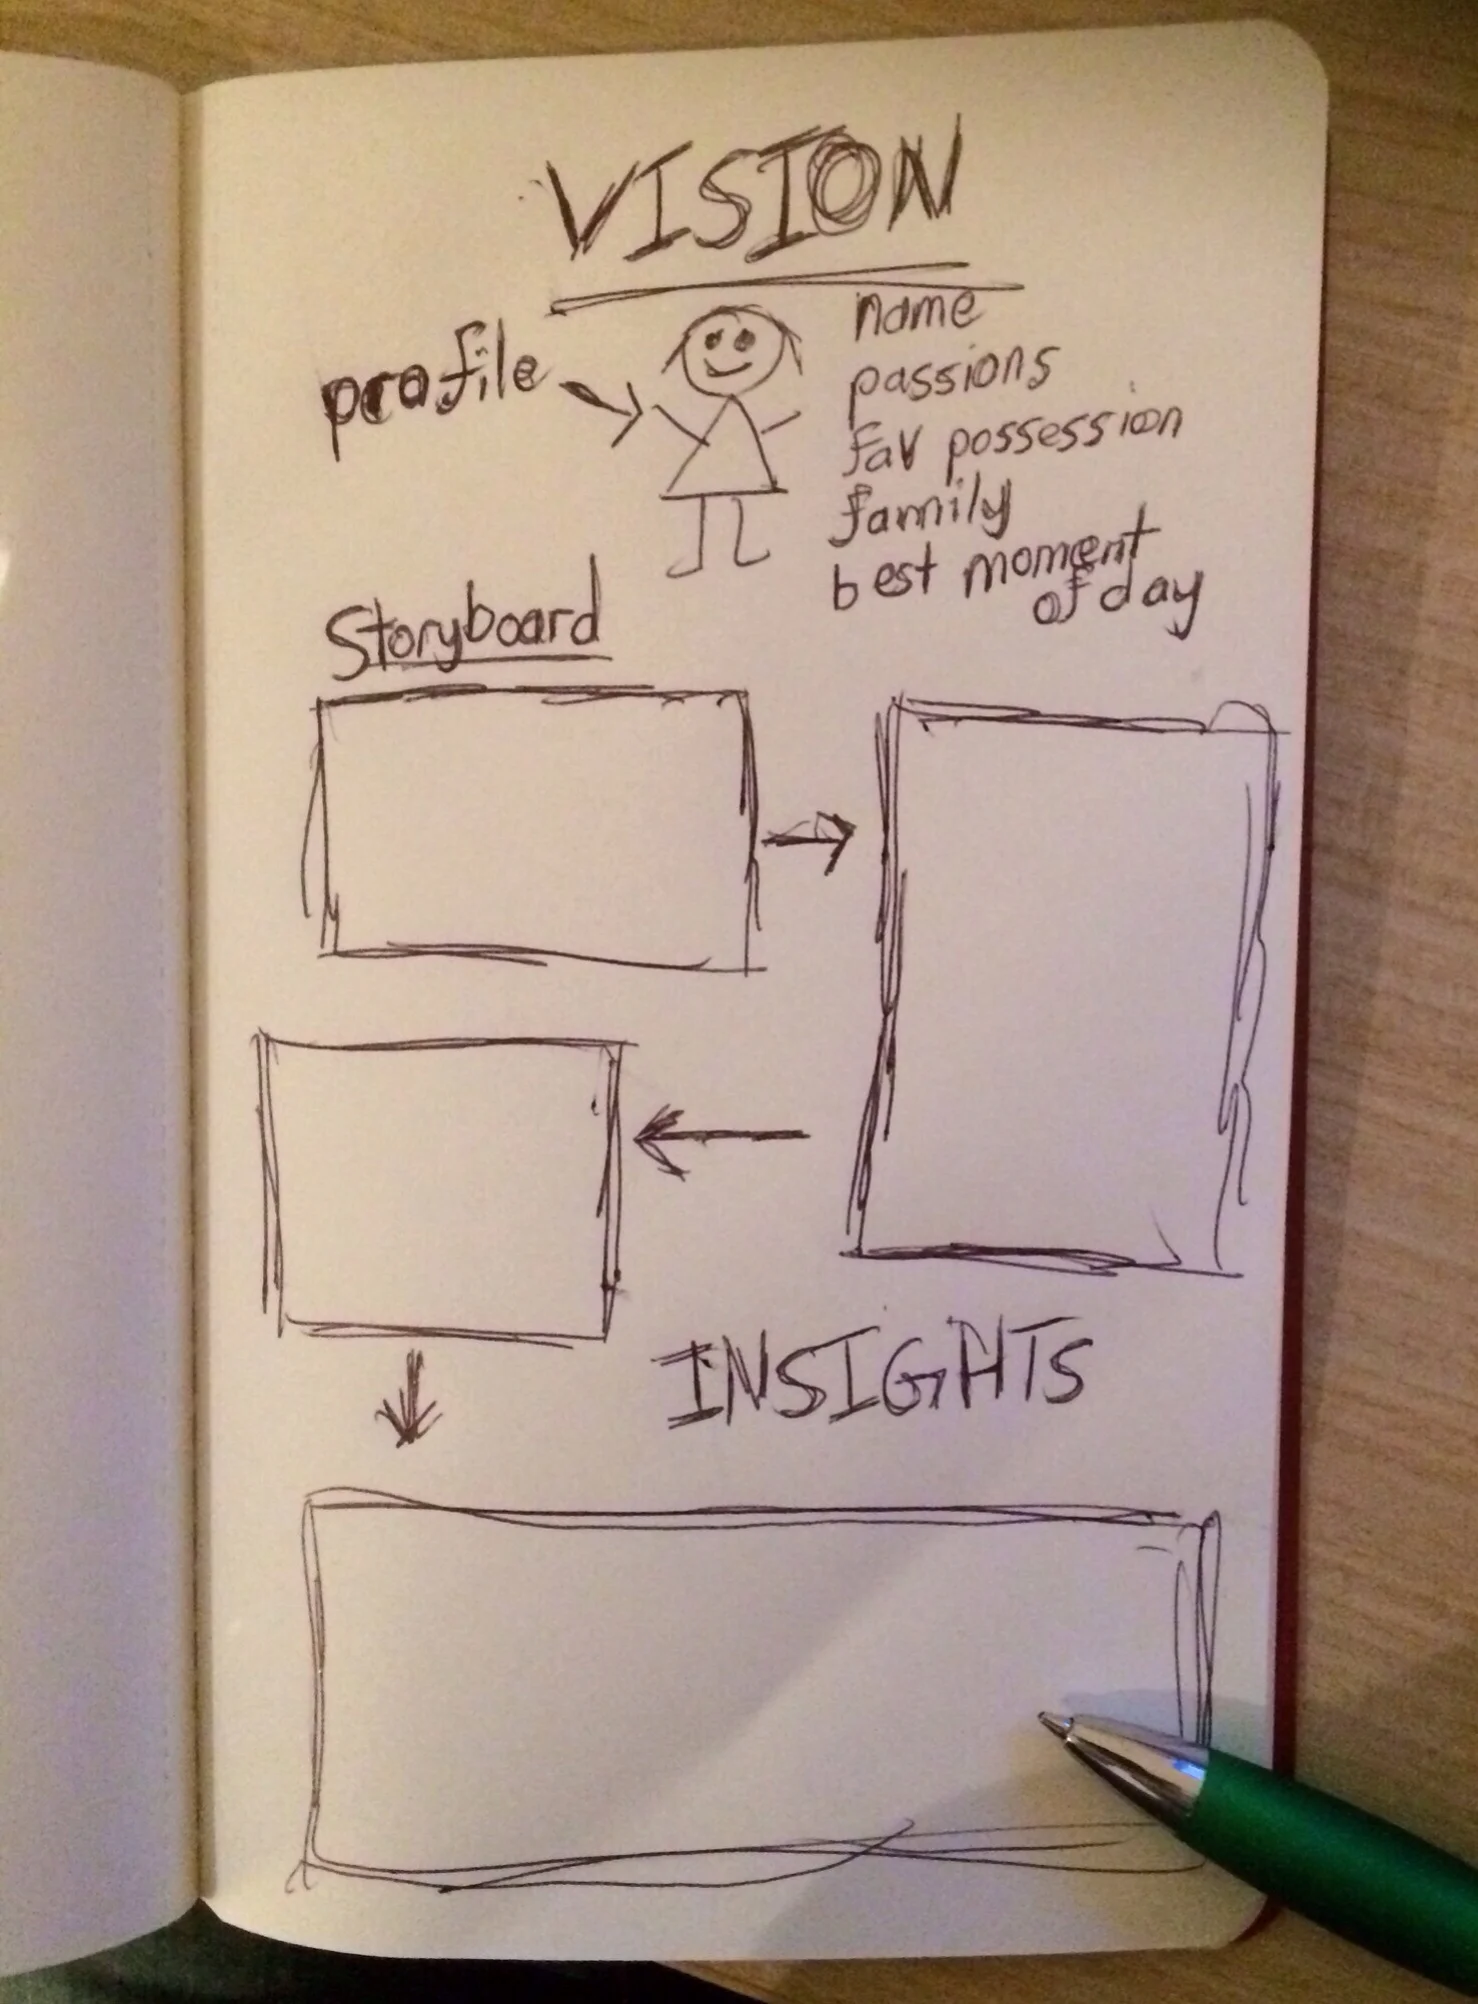 VISION
profile
name
passions
fav possession
family
best moment
of day
Storyboard
INSIGHTS